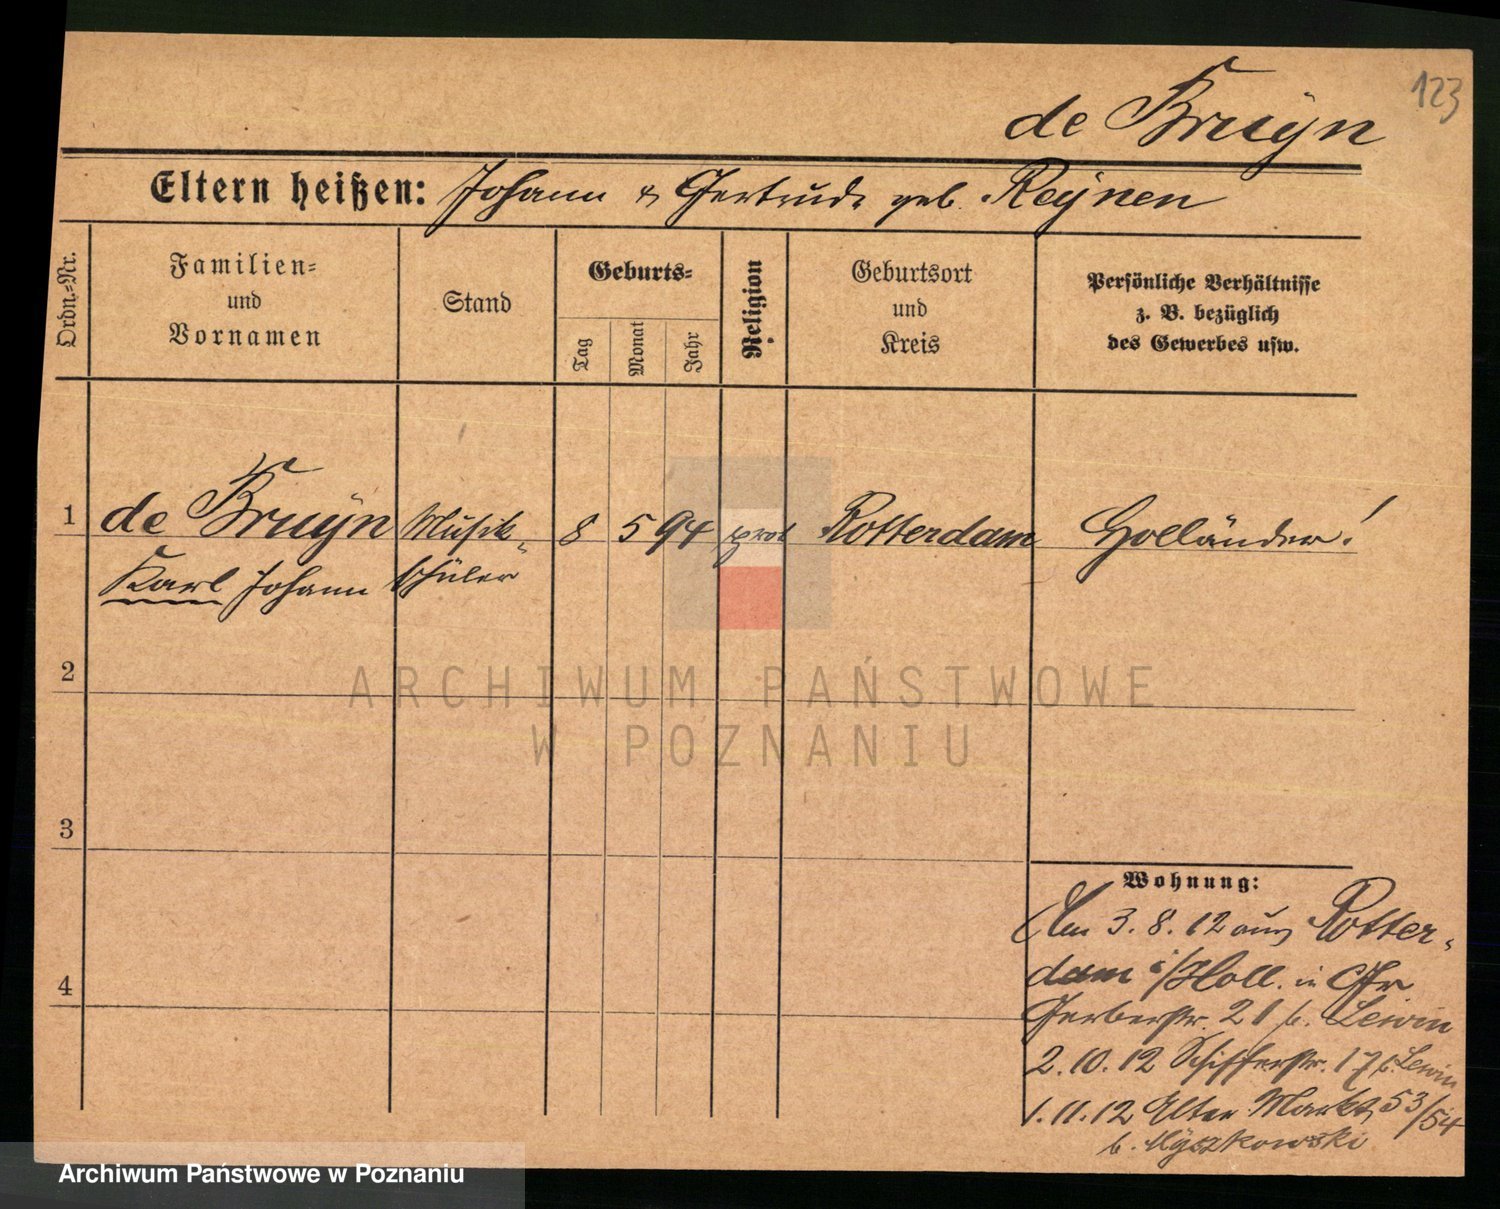 123
de Bruÿn
Eltern heißen: Johann & Gertrude geb. Reÿnen
Ordn.-Nr.
Familien-
und
Vornamen
Stand
Geburts-
Tag
Monat
Jahr
Religion
Geburtsort
und
Kreis
Persönliche Verhältnisse
z. B. bezüglich
des Gewerbes usw.
1 de Bruÿn Musik- 8 5 94 prot Rotterdam Holländer!
Karl Johann schüler
2
3
4
ARCHIWUM PAŃSTWOWE
W POZNANIU
Wohnung:
Am 3. 8. 12 aus Rotter-
dam i/Holl. in
Gerberstr. 21 b. Lewin
2. 10. 12 Schifferstr. 17 b. Lewin
1. 11. 12 Alter Markt 53/54
b. Myszkowski
Archiwum Państwowe w Poznaniu